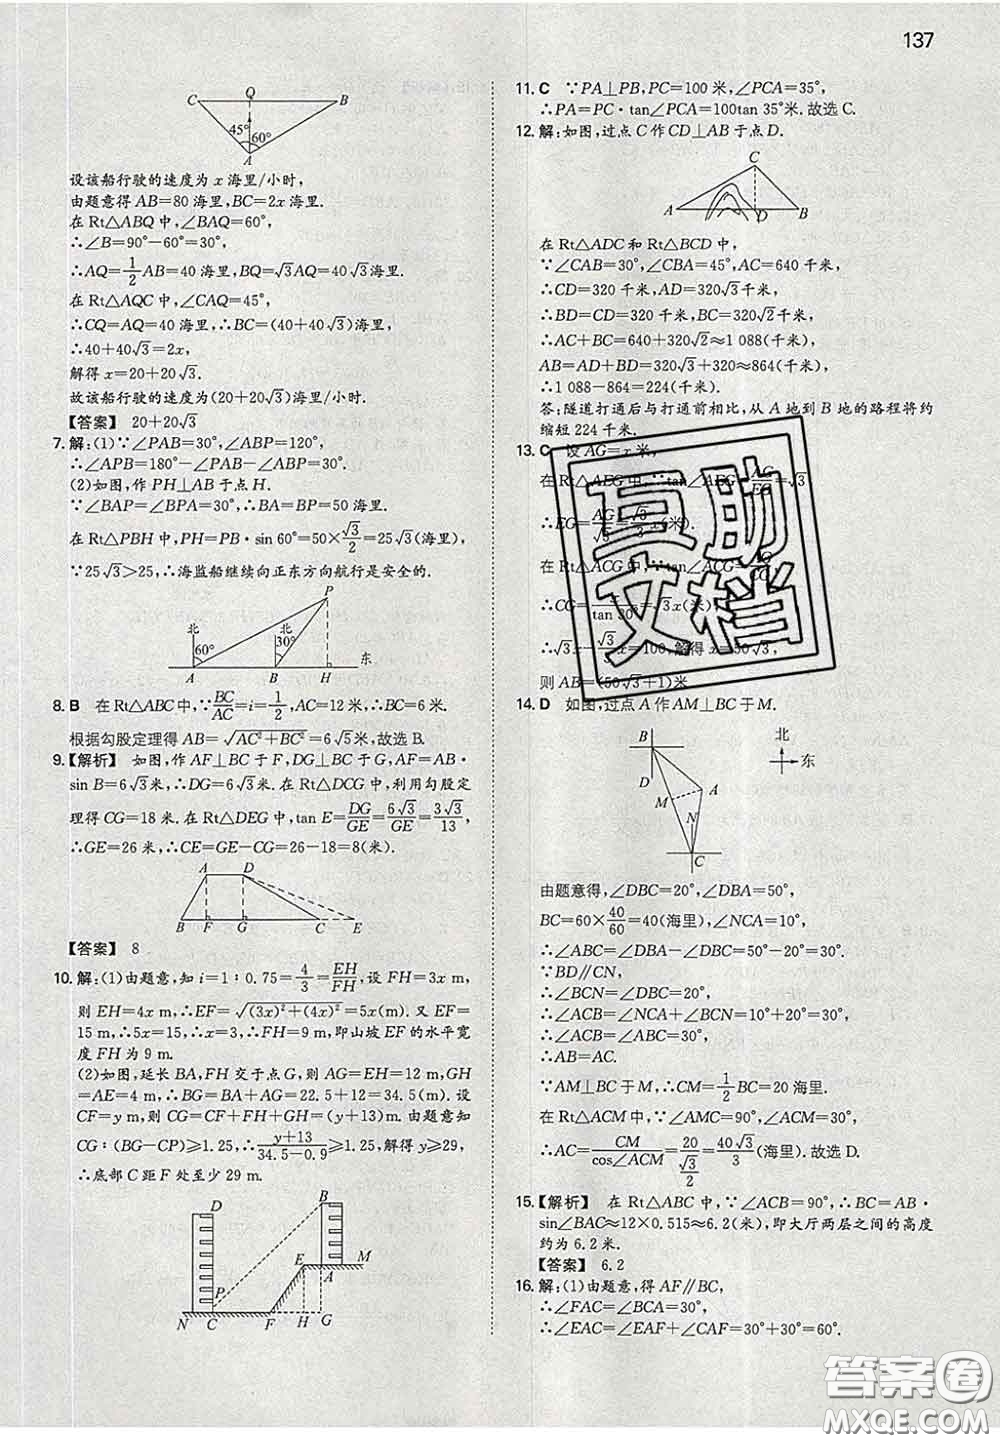 137
C Q B
45° 60°
A
设该船行驶的速度为 x 海里/小时,
由题意得 AB=80 海里,BC=2x 海里.
在 Rt△ABQ 中,∠BAQ=60°,
∴∠B=90°-60°=30°,
∴AQ=1/2AB=40 海里,BQ=√3AQ=40√3 海里.
在 Rt△AQC 中,∠CAQ=45°,
∴CQ=AQ=40 海里,∴BC=(40+40√3)海里,
∴40+40√3=2x,
解得 x=20+20√3.
故该船行驶的速度为(20+20√3)海里/小时.
【答案】 20+20√3
7. 解:(1)∵∠PAB=30°,∠ABP=120°,
∴∠APB=180°-∠PAB-∠ABP=30°.
(2)如图,作 PH⊥AB 于点 H.
∵∠BAP=∠BPA=30°,∴BA=BP=50 海里.
在 Rt△PBH 中,PH=PB·sin 60°=50×√3/2=25√3(海里),
∵25√3>25,∴海监船继续向正东方向航行是安全的.
P
北 北
60° 30° 东
A B H
8. B 在 Rt△ABC 中,∵BC/AC=i=1/2,AC=12 米,∴BC=6 米.
根据勾股定理得 AB=√(AC²+BC²)=6√5米,故选 B.
9. 【解析】 如图,作 AF⊥BC 于 F,DG⊥BC 于 G,AF=AB·
sin B=6√3米,∴DG=6√3米.在 Rt△DCG 中,利用勾股定
理得 CG=18 米.在 Rt△DEG 中,tan E=DG/GE=6√3/GE=3√3/13,
∴GE=26 米,∴CE=GE-CG=26-18=8(米).
A D
B F G C E
【答案】 8
10. 解:(1)由题意,知 i=1∶0.75=4/3=EH/FH,设 FH=3x m,
则 EH=4x m,∴EF=√((3x)²+(4x)²)=5x(m).又 EF=
15 m,∴5x=15,∴x=3,∴FH=9 m,即山坡 EF 的水平宽
度 FH 为 9 m.
(2)如图,延长 BA,FH 交于点 G,则 AG=EH=12 m,GH
=AE=4 m,∴BG=BA+AG=22.5+12=34.5(m).设
CF=y m,则 CG=CF+FH+GH=(y+13)m.由题意知
CG∶(BG-CP)≥1.25,∴(y+13)/(34.5-0.9)≥1.25,解得 y≥29,
∴底部 C 距 F 处至少 29 m.
D B
E M
P A
N C F H G
11. C ∵PA⊥PB,PC=100 米,∠PCA=35°,
∴PA=PC·tan∠PCA=100tan 35°米.故选 C.
12. 解:如图,过点 C 作 CD⊥AB 于点 D.
C
A D B
在 Rt△ADC 和 Rt△BCD 中,
∵∠CAB=30°,∠CBA=45°,AC=640 千米,
∴CD=320 千米,AD=320√3 千米,
∴BD=CD=320 千米,BC=320√2 千米,
∴AC+BC=640+320√2≈1 088(千米),
AB=AD+BD=320√3+320≈864(千米),
∴1 088-864=224(千米).
答:隧道打通后与打通前相比,从 A 地到 B 地的路程将约
缩短 224 千米.
13. C 设 AG=x 米,
在 Rt△AEG 中,∵tan∠AEG=AG/EG=√3
∴EG=AG/√3=√3/3x(米).
在 Rt△ACG 中,∵tan∠ACG=AG/CG
∴CG=x/tan 30°=√3x(米)
∴√3x-√3/3x=100,解得 x=50√3,
则 AB=(50√3+1)米
14. D 如图,过点 A 作 AM⊥BC 于 M.
B 北
东
D
M A
N
C
由题意得,∠DBC=20°,∠DBA=50°,
BC=60×40/60=40(海里),∠NCA=10°,
∴∠ABC=∠DBA-∠DBC=50°-20°=30°.
∵BD∥CN,
∴∠BCN=∠DBC=20°,
∴∠ACB=∠ACN+∠BCN=10°+20°=30°,
∴∠ACB=∠ABC=30°,
∴AB=AC.
∵AM⊥BC 于 M,∴CM=1/2BC=20 海里.
在 Rt△ACM 中,∵∠AMC=90°,∠ACM=30°,
∴AC=CM/cos∠ACM=20/(√3/2)=40√3/3(海里).故选 D.
15. 【解析】 在 Rt△ABC 中,∵∠ACB=90°,∴BC=AB·
sin∠BAC≈12×0.515≈6.2(米),即大厅两层之间的高度
约为 6.2 米.
【答案】 6.2
16. 解:(1)由题意,得 AF∥BC,
∴∠FAC=∠BCA=30°,
∴∠EAC=∠EAF+∠CAF=30°+30°=60°.
互助文档
答案圈
MXQE.COM